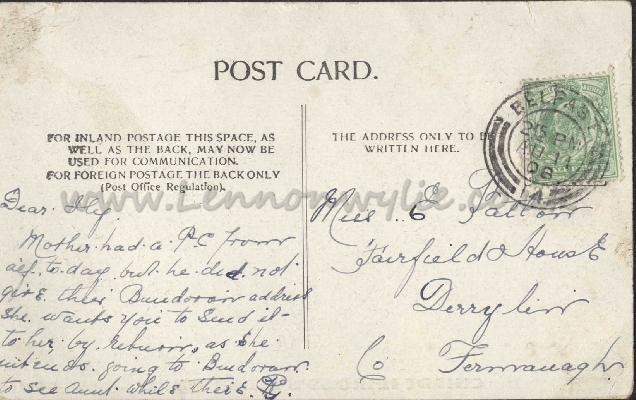 POST CARD.
FOR INLAND POSTAGE THIS SPACE, AS
WELL AS THE BACK, MAY NOW BE
USED FOR COMMUNICATION.
FOR FOREIGN POSTAGE THE BACK ONLY
(Post Office Regulation).
THE ADDRESS ONLY TO BE
WRITTEN HERE.
BELFAST
AU 11
08
www.Lennonwylie.co
Dear
Mother had a P.C from
alf to day but he did not
give their Bundoran address
she wants you to send it
to her by return, as she
intends going to Bundoran
to see Aunt while there
Miss E Fallow
Fairfield House
Derrylin
Co Fermanagh